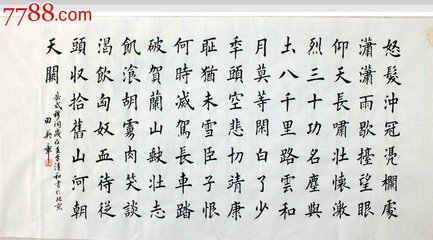 7788.com
怒髮沖冠凴欄處
瀟瀟雨歇擡望眼
仰天長嘯壯懷激
烈三十功名塵與
土八千里路雲和
月莫等閑白了少
秊頭空悲切靖康
恥猶未雪臣子恨
何時滅駕長車踏
破賀蘭山缺壯志
飢湌胡虜肉笑談
渴飲匈奴血待從
頭收拾舊山河朝
天闕
岳武穆詞歲在清和書於北京
田英章